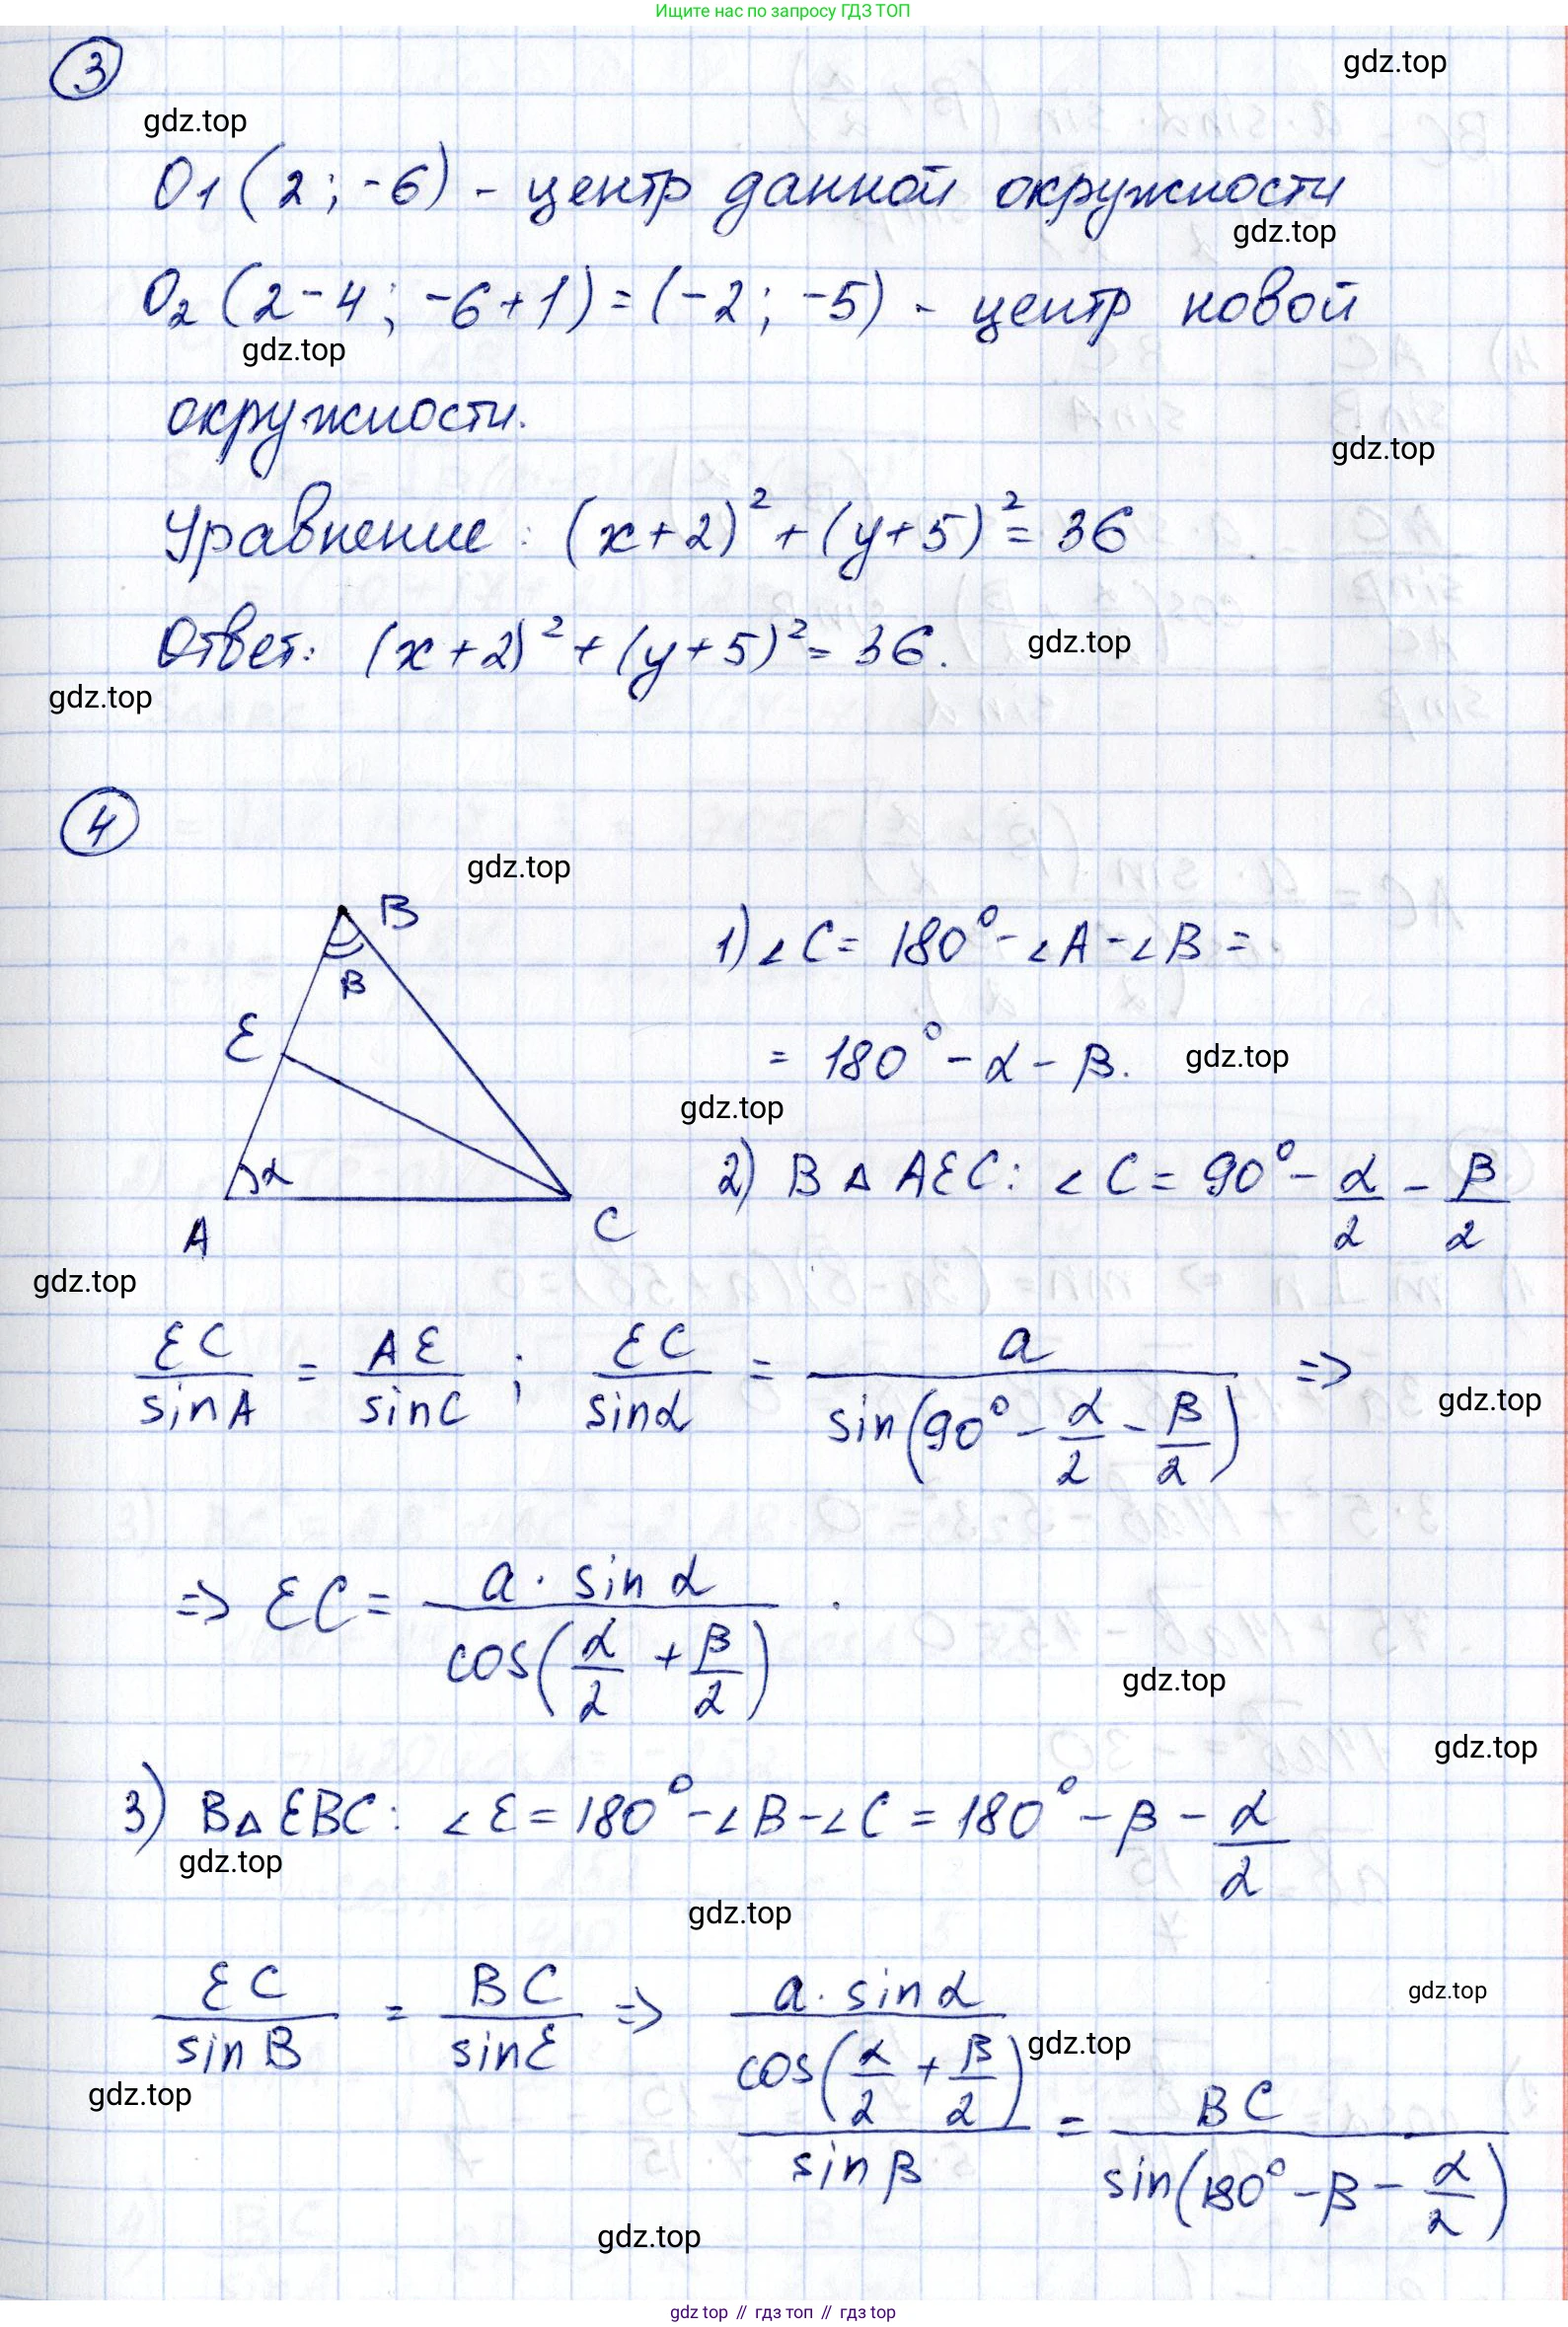 Ищите нас по запросу ГДЗ ТОП
3
gdz.top
gdz.top
O1 (2 ; -6) - центр данной окружности
gdz.top
O2 (2-4 ; -6+1) = (-2 ; -5) - центр новой
gdz.top
окружности.
gdz.top
Уравнение : (x+2)² + (y+5)² = 36
Ответ: (x+2)² + (y+5)² = 36.
gdz.top
gdz.top
4
gdz.top
B
β
E
α
A
C
1) ∠C = 180° - ∠A - ∠B =
= 180° - α - β.
gdz.top
gdz.top
2) В △ AEC: ∠C = 90° - α/2 - β/2
gdz.top
EC/sinA = AE/sinC ; EC/sinα = a/sin(90° - α/2 - β/2) =>
gdz.top
=> EC = a · sin α/cos(α/2 + β/2) .
gdz.top
gdz.top
3) В △ EBC: ∠E = 180° - ∠B - ∠C = 180° - β - α/2
gdz.top
gdz.top
EC/sin B = BC/sin E => a · sin α/cos(α/2 + β/2)/sin β = BC/sin(180° - β - α/2)
gdz.top
gdz.top
gdz.top
gdz.top
gdz top // гдз топ // гдз top